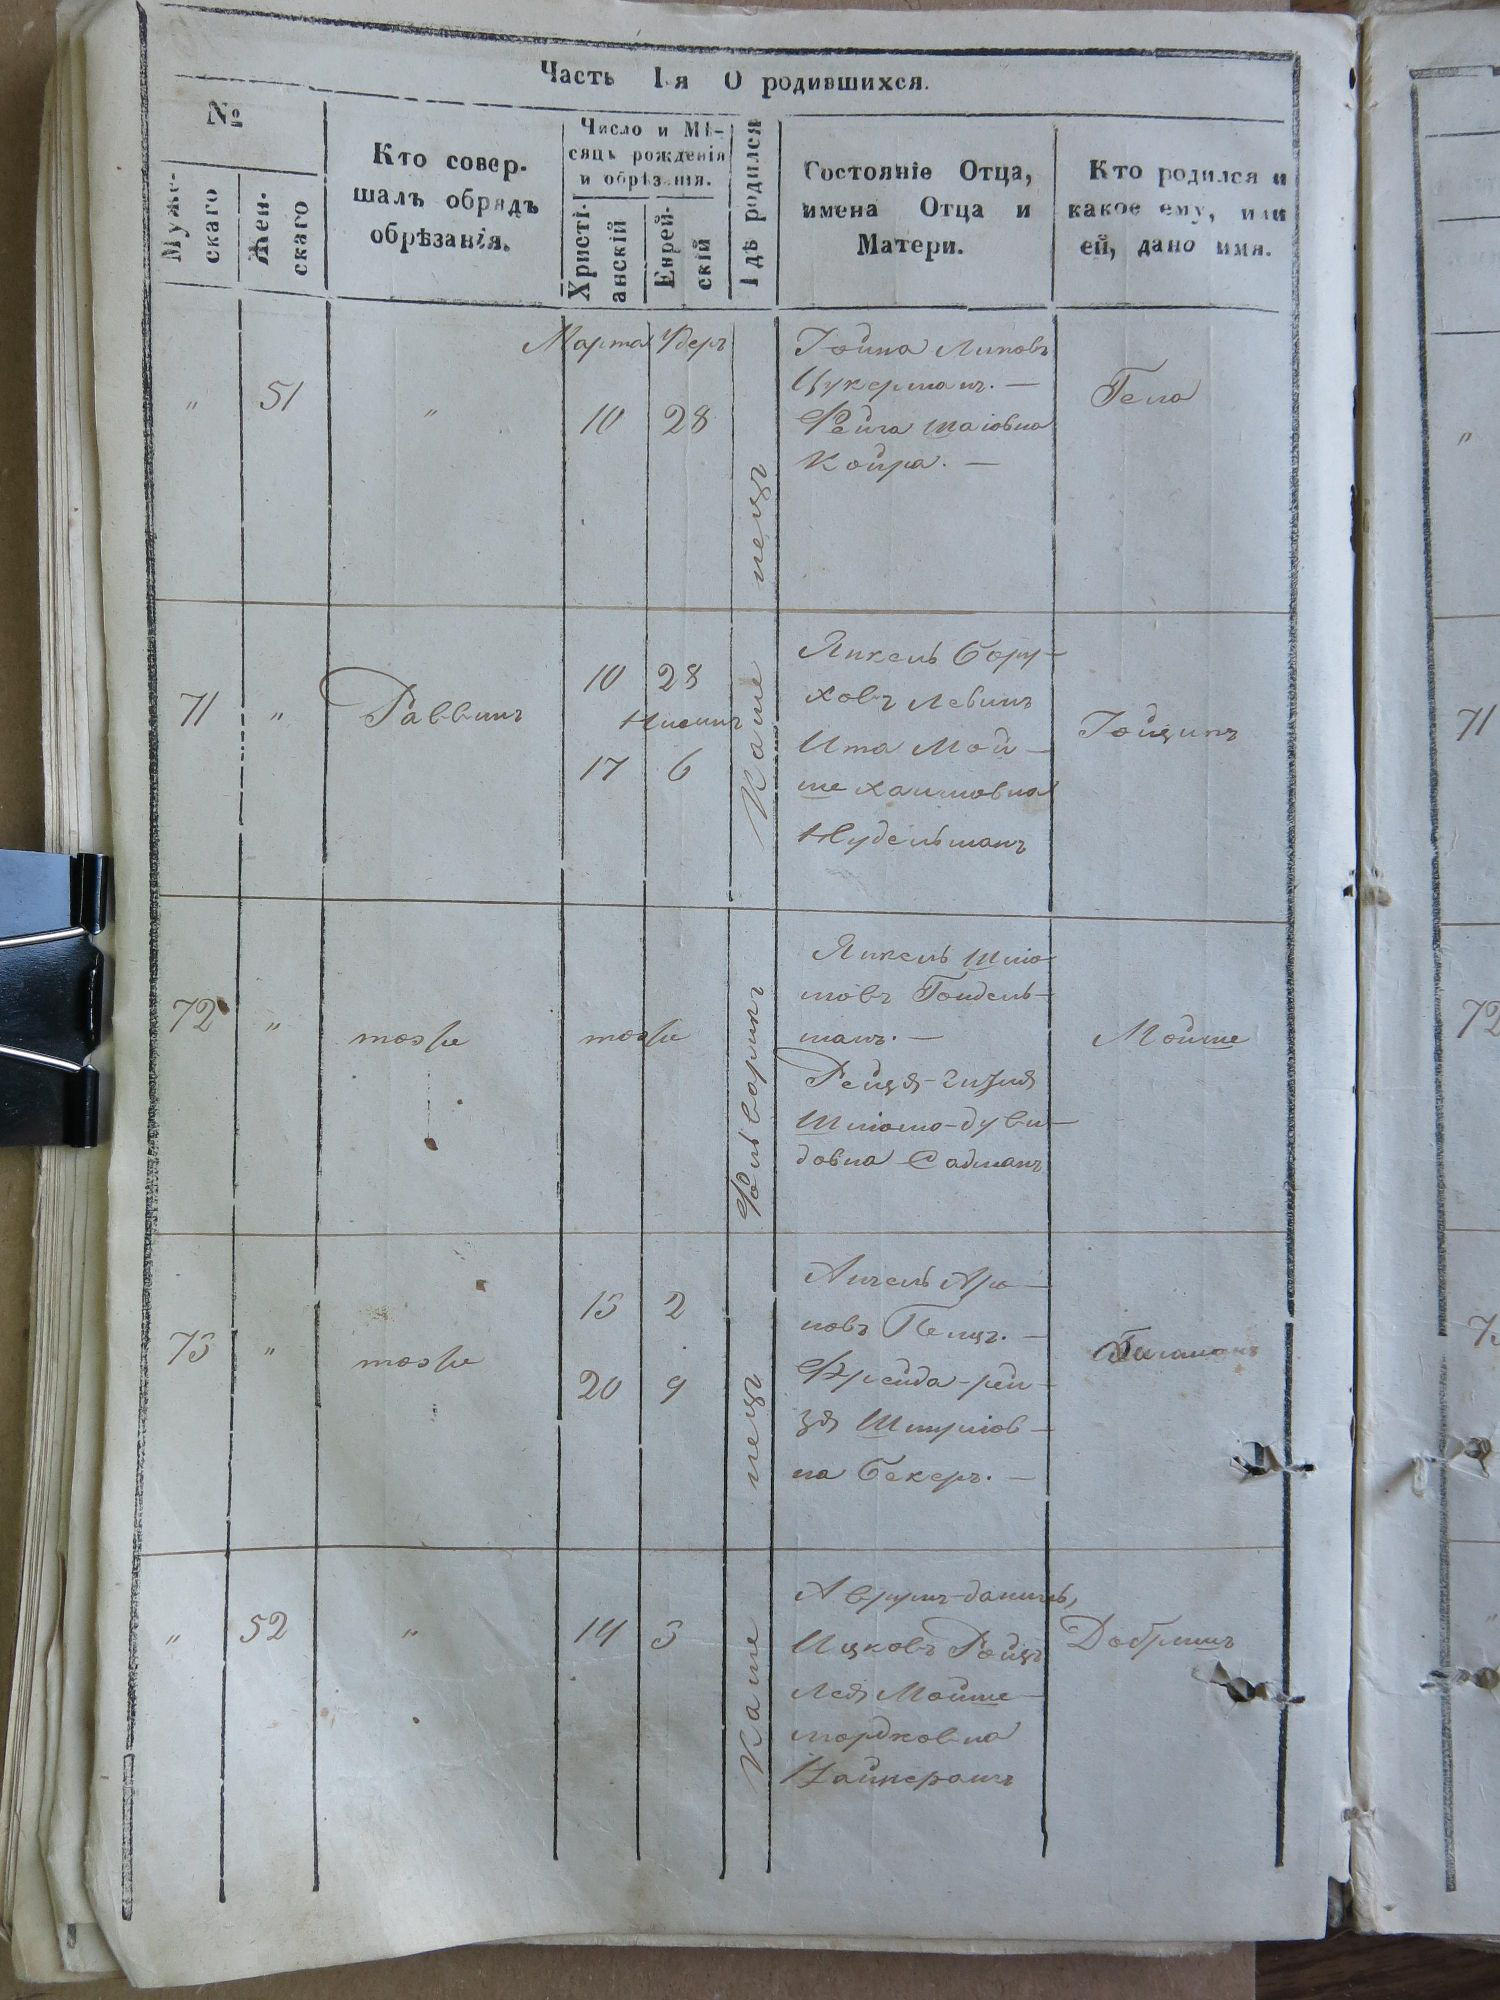 Часть I-я О родившихся.
№
Мужескаго
Женскаго
Кто совер-
шалъ обрядъ
обрѣзанія.
Число и Мѣ-
сяцъ рожденія
и обрѣзанія.
Христі-
анскій
Еврей-
скій
Гдѣ родился
Состояніе Отца,
имена Отца и
Матери.
Кто родился и
какое ему, или
ей, дано имя.
Марта Удеръ
" 51 " 10 28
Іойна Липовъ
Цукерманъ. —
Фейга Шаіовна
Койра. —
Гела
Каше пецъ
71 " Раввинъ
10 28
Нисинъ
17 6
Янкель Бору-
ховъ Левинъ
Ита Мой-
ше Хаимовна
Нудельманъ
Іойцинъ
72 " тоже тоже
Фольваркъ
Янкель Шлю-
мовъ Гендель-
манъ. —
Рейзя-
Шліомо-Дуви-
довна
Мойше
73 " тоже
13 2
20 9
Анчель Аро-
новъ Пецъ. —
Фрейда-рей-
зя Шмулiов-
на Бекеръ. —
Каше пецъ
" 52 " 14 3
Аврумъ-Даниль
Ицковъ Ройцъ
Лея Мойше-
мордковна
Добришъ
71
72